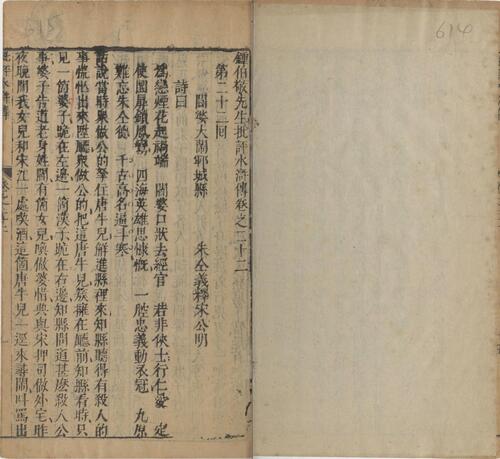 614
鍾伯敬先生批評水滸傳卷之二十二
第二十二回
閻婆大鬧鄆城縣 朱仝義釋宋公明
詩曰
為戀煙花起禍端 閻婆口狀去經官 若非俠士行仁愛 定
使圜扉鎖鳳鸞 四海英雄思慷慨 一腔忠義動衣冠 九原
難忘朱仝德 千古高名逼斗寒
話說當時衆做公的拏住唐牛兒解進縣裡來知縣聽得有殺人的
事慌忙出來陞廳衆做公的把這唐牛兒簇擁在廳前知縣看時只
見一箇婆子跪在左邊一箇漢子跪在右邊知縣問道甚麽殺人公
事婆子告道老身姓閻有箇女兒喚做婆惜典與宋押司做外宅昨
夜晚間我女兒和宋江一處喫酒這箇唐牛兒一逕來尋鬧叫罵出
批評水滸傳 卷之二十二